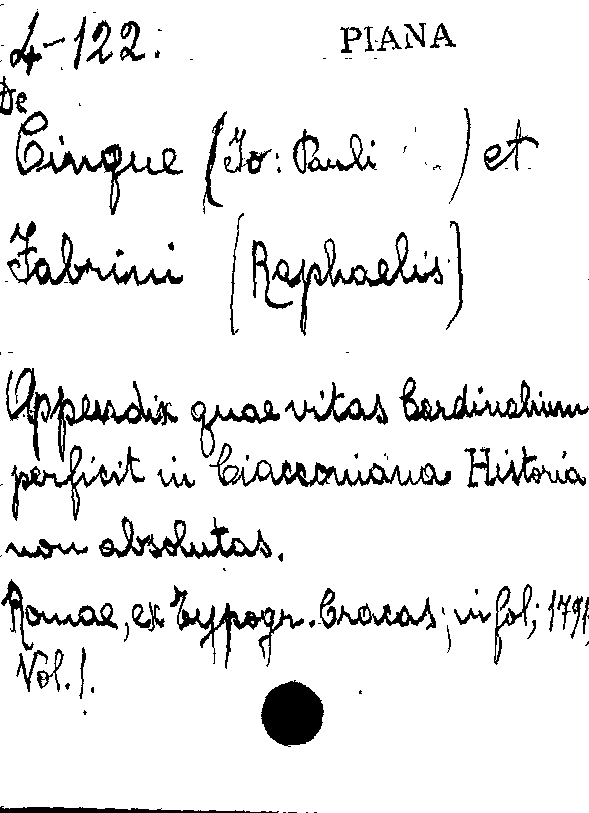 4-122. PIANA
De
Cinque (Jo: Pauli ) et
Fabrini (Raphaelis)
Appendix quae vitas Cardinalium
perficit in Ciacconiana Historia
non absolutas.
Romae, ex Typogr. Cracas; in fol; 1791
Vol. 1.